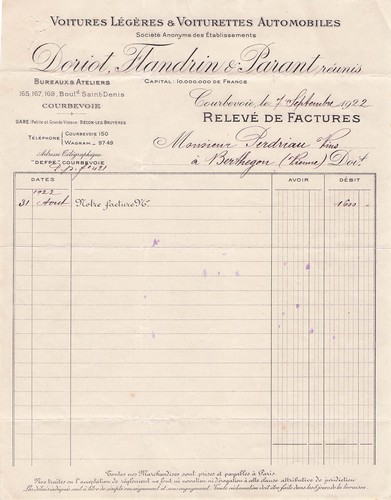 VOITURES LÉGÈRES & VOITURETTES AUTOMOBILES
Société Anonyme des Établissements
Doriot, Flandrin & Parant réunis
BUREAUX & ATELIERS
CAPITAL: 10.000.000 DE FRANCS
165, 167, 169, Bould. Saint-Denis
COURBEVOIE
Courbevoie, le 7 Septembre 1922
RELEVÉ DE FACTURES
GARE (Petite et Grande Vitesse) BÉCON-LES-BRUYÈRES
TÉLÉPHONE COURBEVOIE 150
WAGRAM 97 49
Monsieur Perdriau Vins
Adresse Télégraphique
"DEFPE" COURBEVOIE
à Berthegon (Vienne) Doit
DATES AVOIR DÉBIT
1922
31 Août Notre facture N°
Toutes nos Marchandises sont prises et payables à Paris.
Nos traites ou l'acceptation de règlement ne font ni novation ni dérogation à cette clause attributive de juridiction